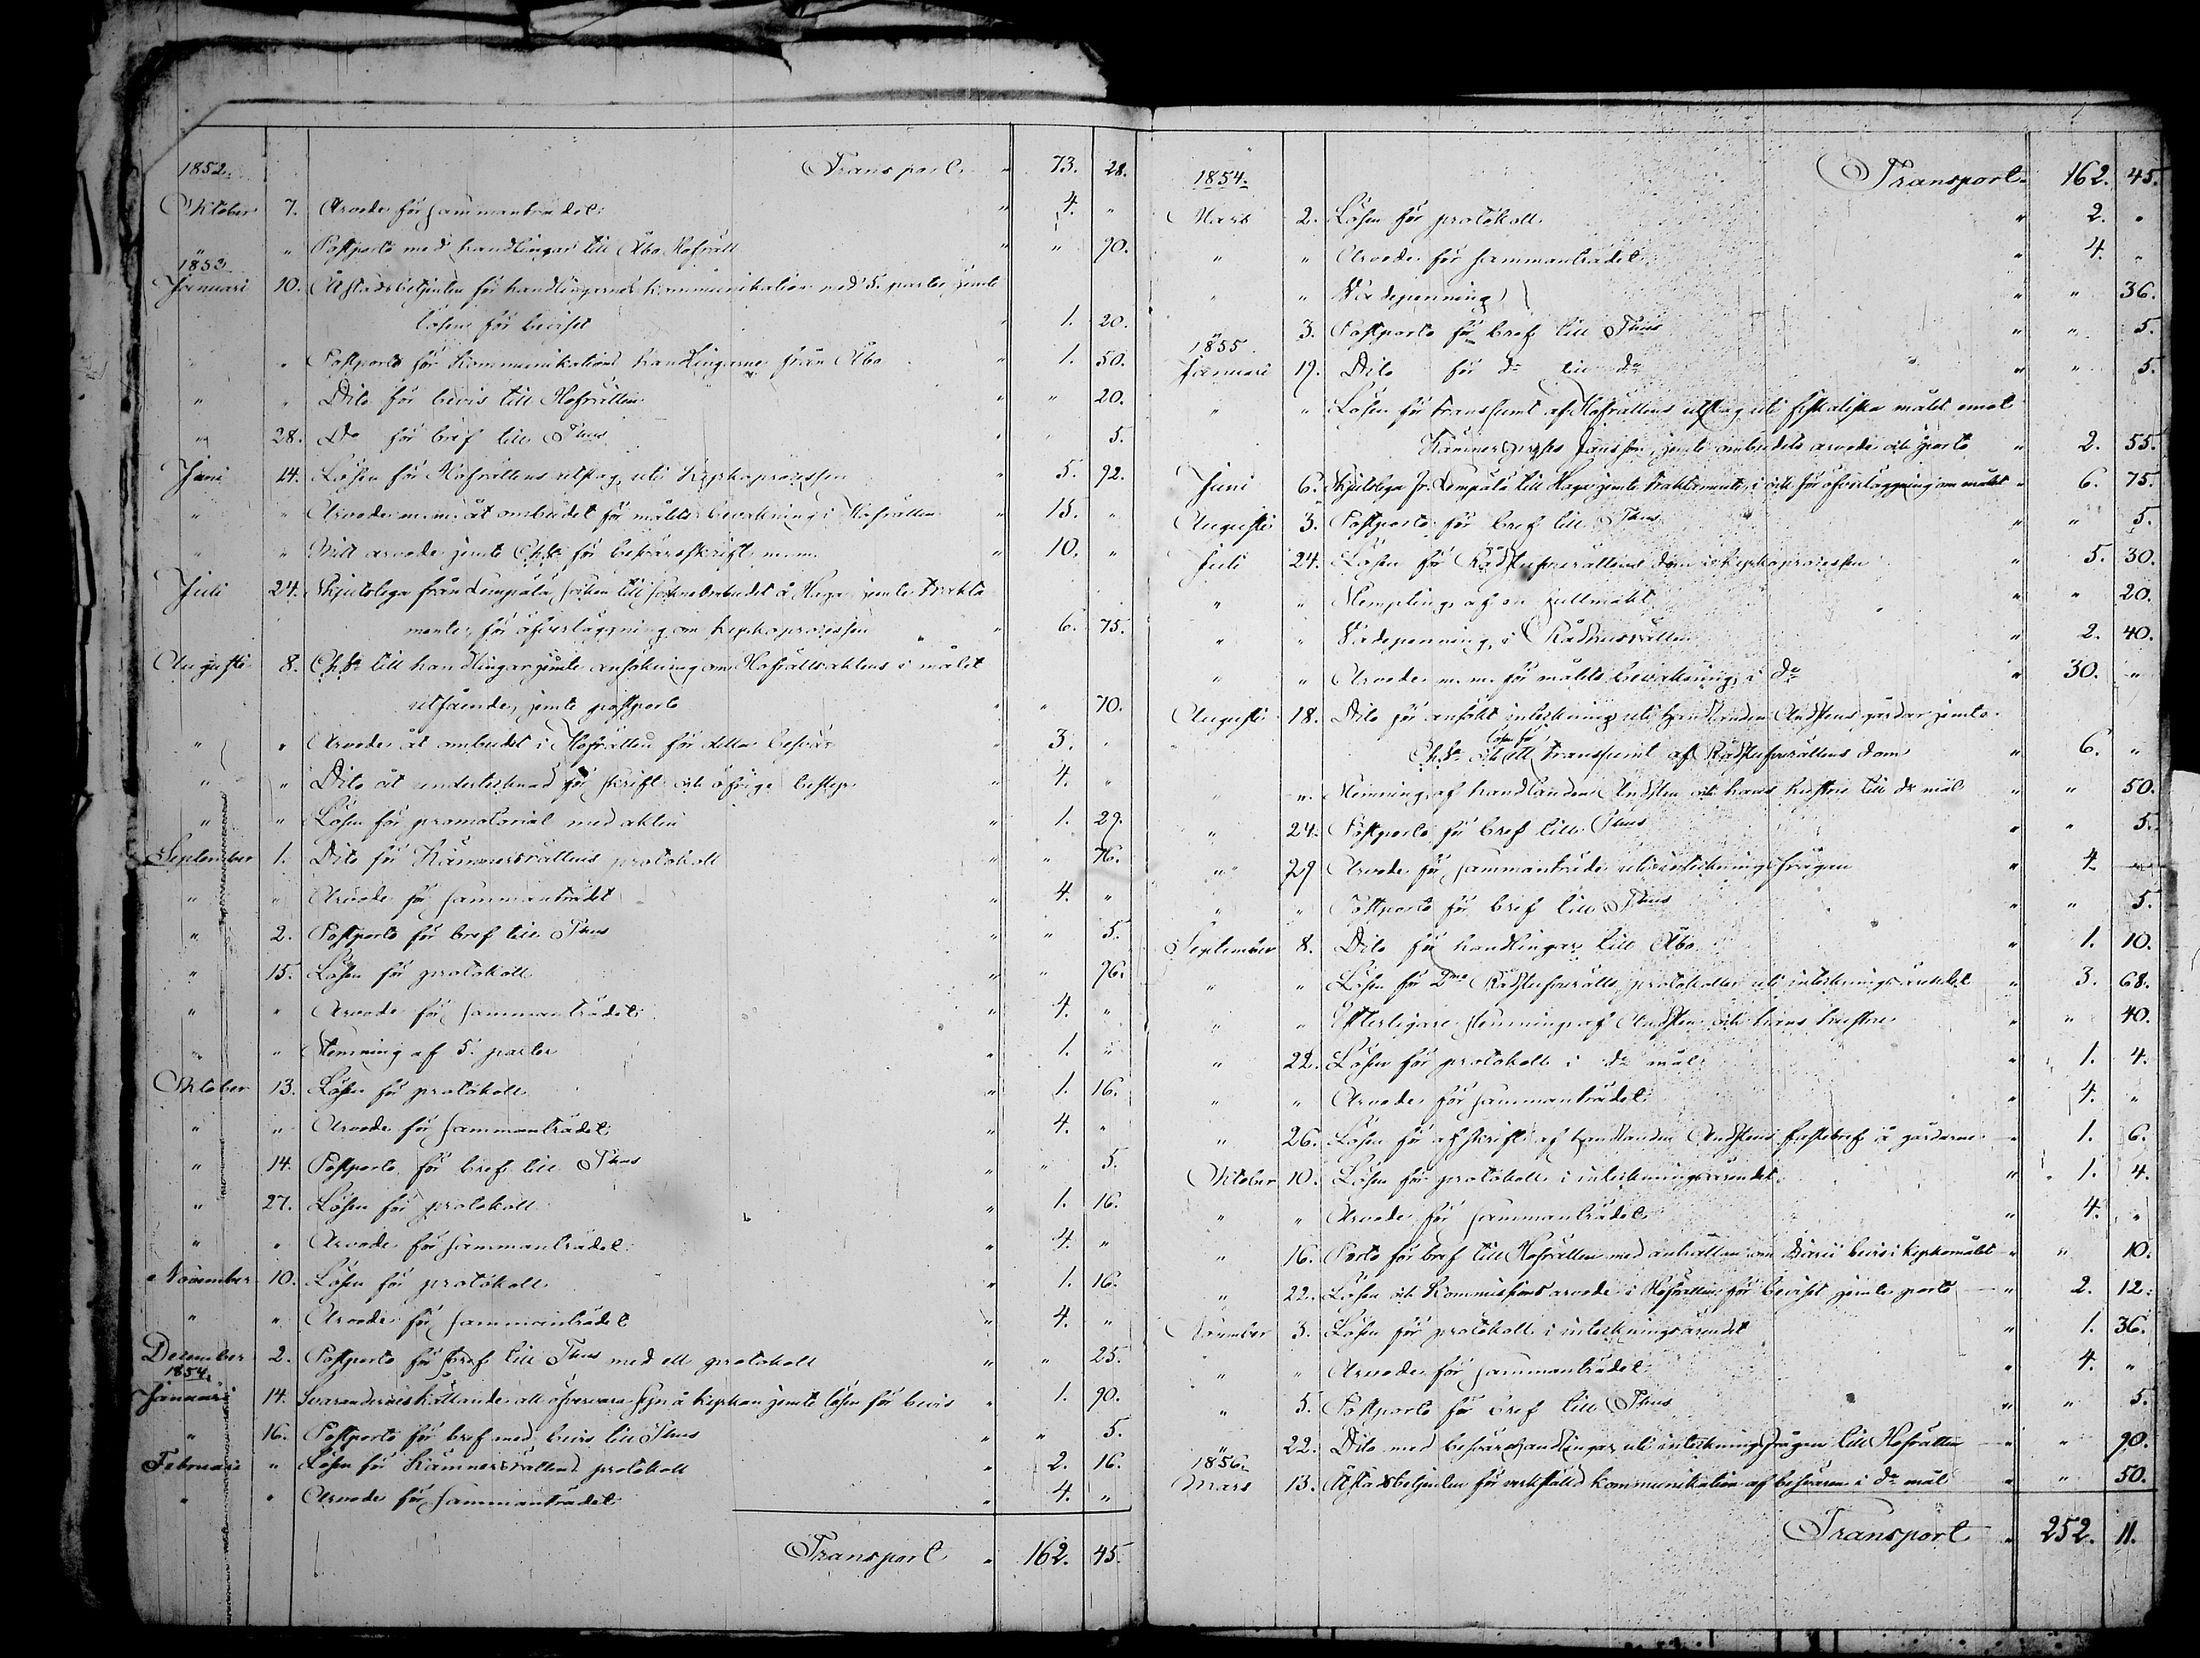 1852. Transport „ 73. 28.
Oktober 7. Arvode för sammanträdet „ 4. „
„ „ Postporto med handlingar till Åbo Hofrätt „ „ 90.
1853
Januari 10. Åt stadsbetjenten för handlingarnes kommunikation med 5. parter jemte
lösen för beviset „ 1. 20.
„ „ Postporto för kommunikations handlingarne från Åbo „ 1. 50.
„ „ Dito för bevis till Hofrätten „ „ 20.
„ 28. Do för bref till Thus „ „ 5.
Juni 14. Lösen för Hofrättens utslag uti kepkoprocessen „ 5. 92.
„ „ Arvode m. m. åt ombudet för målets bevakning i Hofrätten „ 15. „
„ „ Mitt arvode jemte Ch. Sta för besvärsskrift m. m. „ 10. „
Juli 24. Skjutslega från Lempäälä socken till sockneombudet å Haga jemte trakta
mente, för öfverläggning om kepkoprocessen „ 6. 75.
Augusti 8. Ch. Sta till handlingar jemte ansökning om Hofrättsaktens i målet
utfående, jemte postporto „ „ 70.
„ „ Arvode åt ombudet i Hofrätten för dettas besvär „ 3. „
„ „ Dito åt undertecknad för skrift och öfriga bestyr „ 4. „
„ „ Lösen för promotorial med akten „ 1. 29.
September 1. Dito för Kämnersrättens protokoll „ „ 76.
„ „ Arvode för sammanträdet „ 4. „
„ 2. Postporto för bref till Thus „ „ 5.
„ 15. Lösen för protokoll „ „ 96.
„ „ Arvode för sammanträdet „ 4. „
„ „ Stemning af 5. parter „ 1. „
Oktober 13. Lösen för protokoll „ 1. 16.
„ „ Arvode för sammanträdet „ 4. „
„ 14. Postporto för bref till Thus „ „ 5.
„ 27. Lösen för protokoll „ 1. 16.
„ „ Arvode för sammanträdet „ 4. „
November 10. Lösen för protokoll „ 1. 16.
„ „ Arvode för sammanträdet „ 4. „
December 2. Postporto för bref till Thus med ett protokoll „ „ 25.
1854.
Januari 14. Svarandernes kallande att öfvervara syn å kepkan jemte lösen för bevis „ 1. 90.
„ 16. Postporto för bref med bevis till Thus „ „ 5.
Februari „ Lösen för Kämnersrättens protokoll „ 2. 16.
„ „ Arvode för sammanträdet „ 4. „
Transport „ 162. 45.
1854. Transport „ 162. 45.
Mars 2. Lösen för protokoll „ 2. „
„ „ Arvode för sammanträdet „ 4. „
„ „ Vädepenning „ „ 36.
„ 3. Postporto för bref till Thus „ „ 5.
1855
Januari 19. Dito för do till do „ „ 5.
„ „ Lösen för transsumt af Hofrättens utslag uti fiskaliska målet emot
Jansson, jemte ombudets arvode och porto „ 2. 55.
Juni 6. Skjutslega fr. Lempäälä till Haga jemte traktamente, i och för öfverläggning om målet „ 6. 75.
Augusti 3. Postporto för bref till Thus „ „ 5.
Juli 24. Lösen för Rådstufvurättens dom i kepkoprocessen „ 5. 30.
„ „ Stempling af en fullmakt „ „ 20.
„ „ Vädepenning i Rådhusrätten „ 2. 40.
„ „ Arvode m. m. för målets bevakning i do „ 30. „
Augusti 18. Dito för ansökt inteckning uti handlanden Andsténs gårdar jemte
„ Ch. Sta och lösen för ett transsumt af Rådstufvurättens dom „ 6. „
„ „ Stemning af handlanden Andstén och hans hustru till do mål „ „ 50.
„ 24. Postporto för bref till Thus „ „ 5.
„ 29 Arvode för sammanträde uti inteckningsfrågan „ 4. „
„ „ Postporto för bref till Thus „ „ 5.
September 8. Dito för handlingar till Åbo „ 1. 10.
„ „ Lösen för 2ne Rådstufvurätts protokoller uti inteckningsärendet „ 3. 68.
„ „ Ytterligare stemning af Andstén och hans hustru „ „ 40.
„ 22. Lösen för protokoll i do mål „ 1. 4.
„ „ Arvode för sammanträdet „ 4. „
„ 26. Lösen för afskrift af handlanden Andsténs fastebref å gårdarne „ 1. 6.
Oktober 10. Lösen för protokoll i inteckningsärendet „ 1. 4.
„ „ Arvode för sammanträdet „ 4. „
„ 16. Porto för bref till Hofrätten med anhållan om Diarii bevis i kepkomålet „ „ 10.
„ 22. Lösen och Kommissions arvode i Hofrätten för beviset jemte porto „ 2. 12.
November 3. Lösen för protokoll i inteckningsärendet „ 1. 36.
„ „ Arvode för sammanträdet „ 4. „
„ 5. Postporto för bref till Thus „ „ 5.
„ 22. Dito med besvärshandlingar uti inteckningsfrågan till Hofrätten „ „ 90.
1856.
Mars 13. Åt stadsbetjenten för verkställd kommunikation af besvären i do mål „ „ 50.
Transport „ 252. 11.